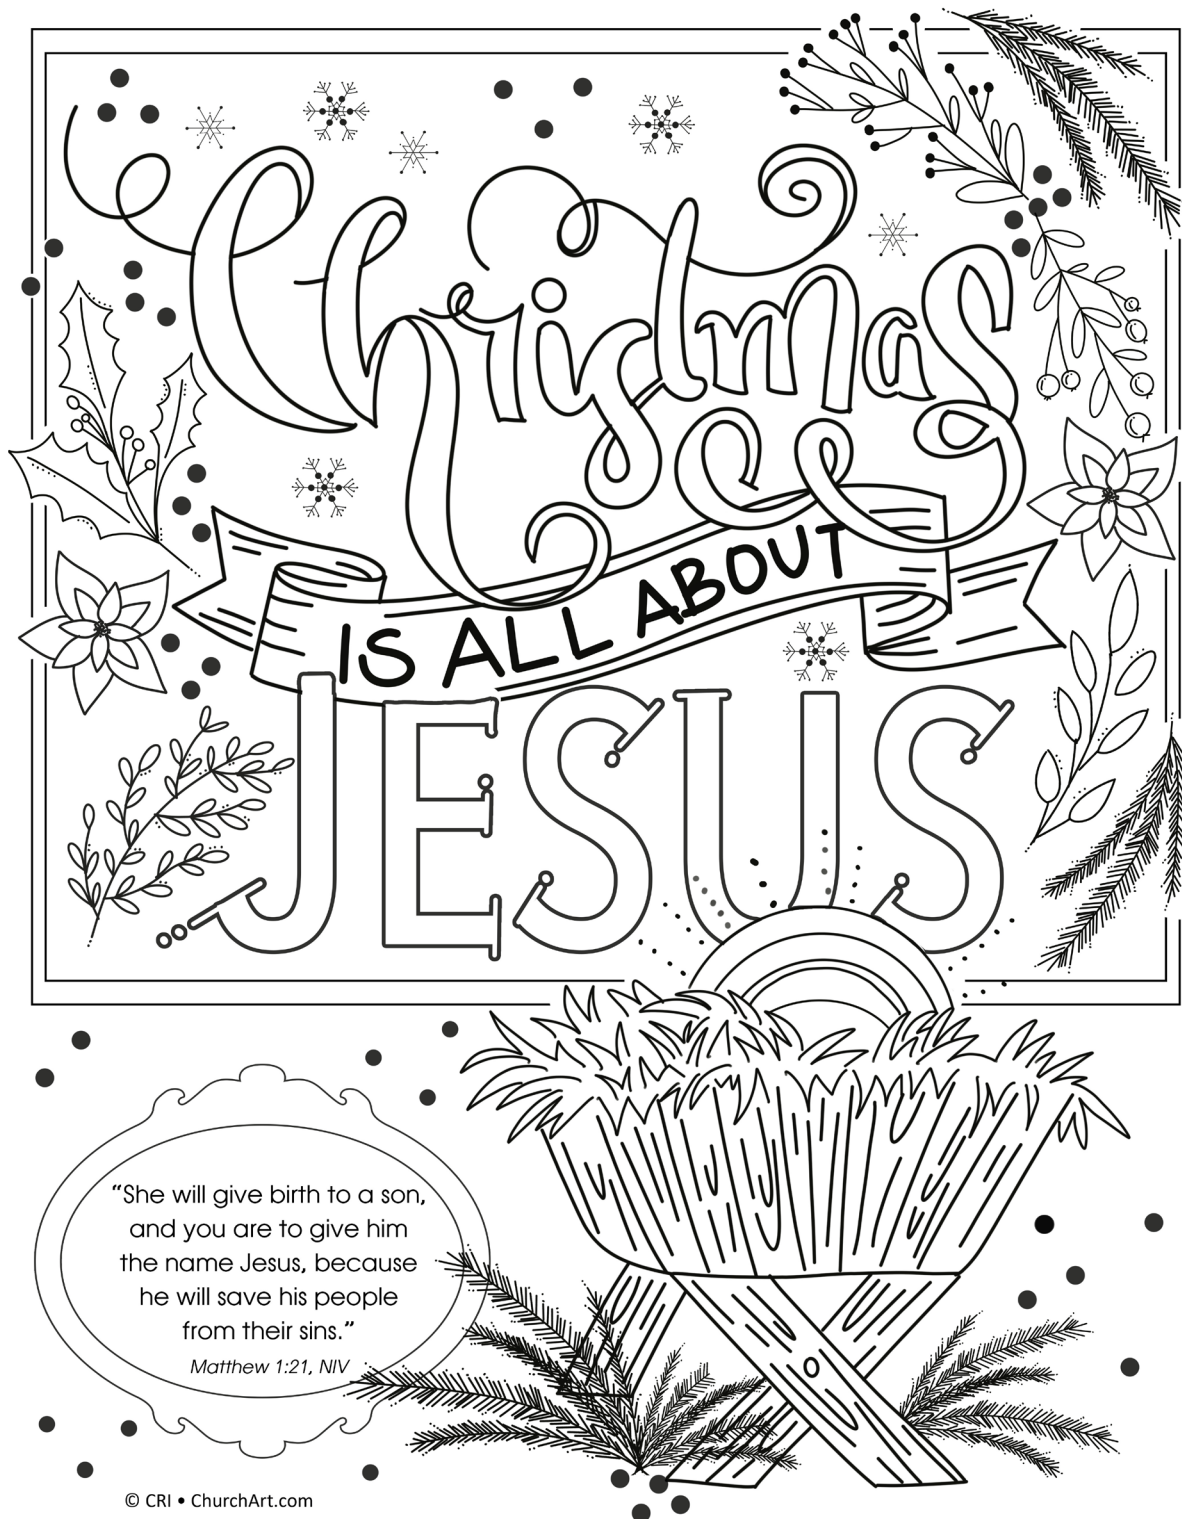 Christmas
IS ALL ABOUT
JESUS
“She will give birth to a son,
and you are to give him
the name Jesus, because
he will save his people
from their sins.”
Matthew 1:21, NIV
© CRI • ChurchArt.com